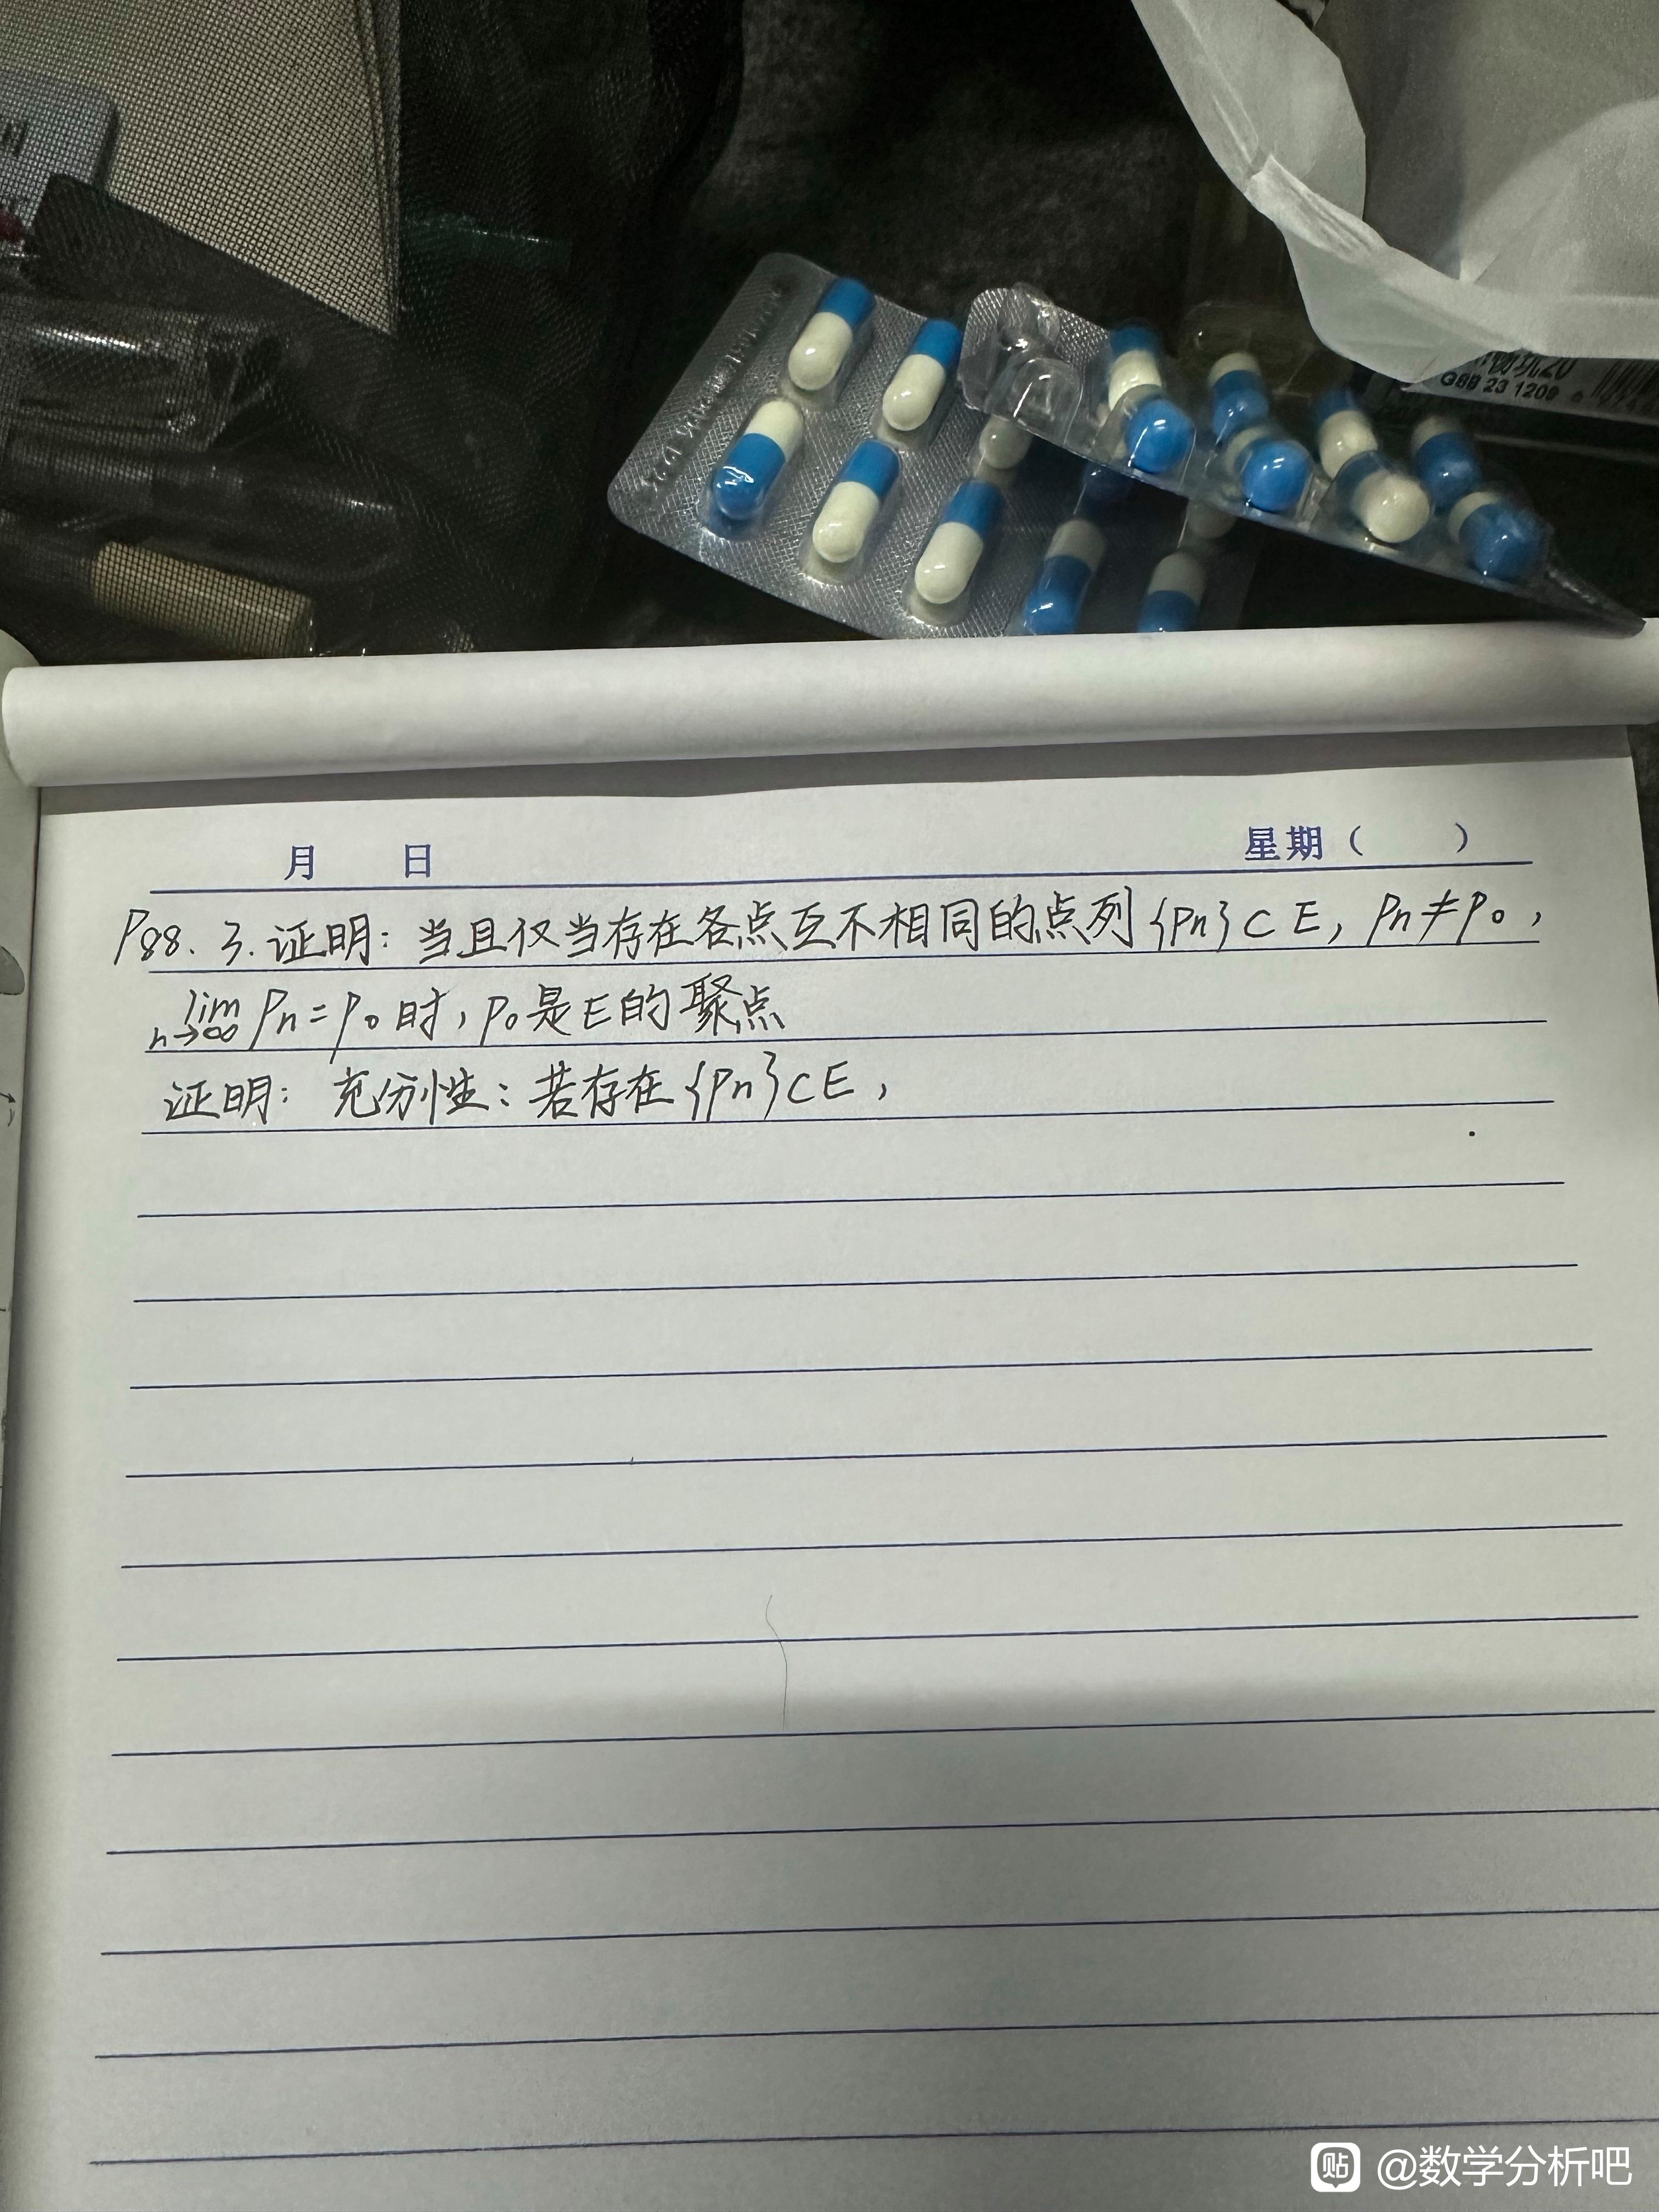 GBB 23 1209
月 日 星期（ ）
P88. 3. 证明：当且仅当存在各点互不相同的点列{Pn}⊂E, Pn≠P0，
lim n→∞ Pn=P0时，P0是E的聚点
证明：充分性：若存在{Pn}⊂E，
贴 @数学分析吧